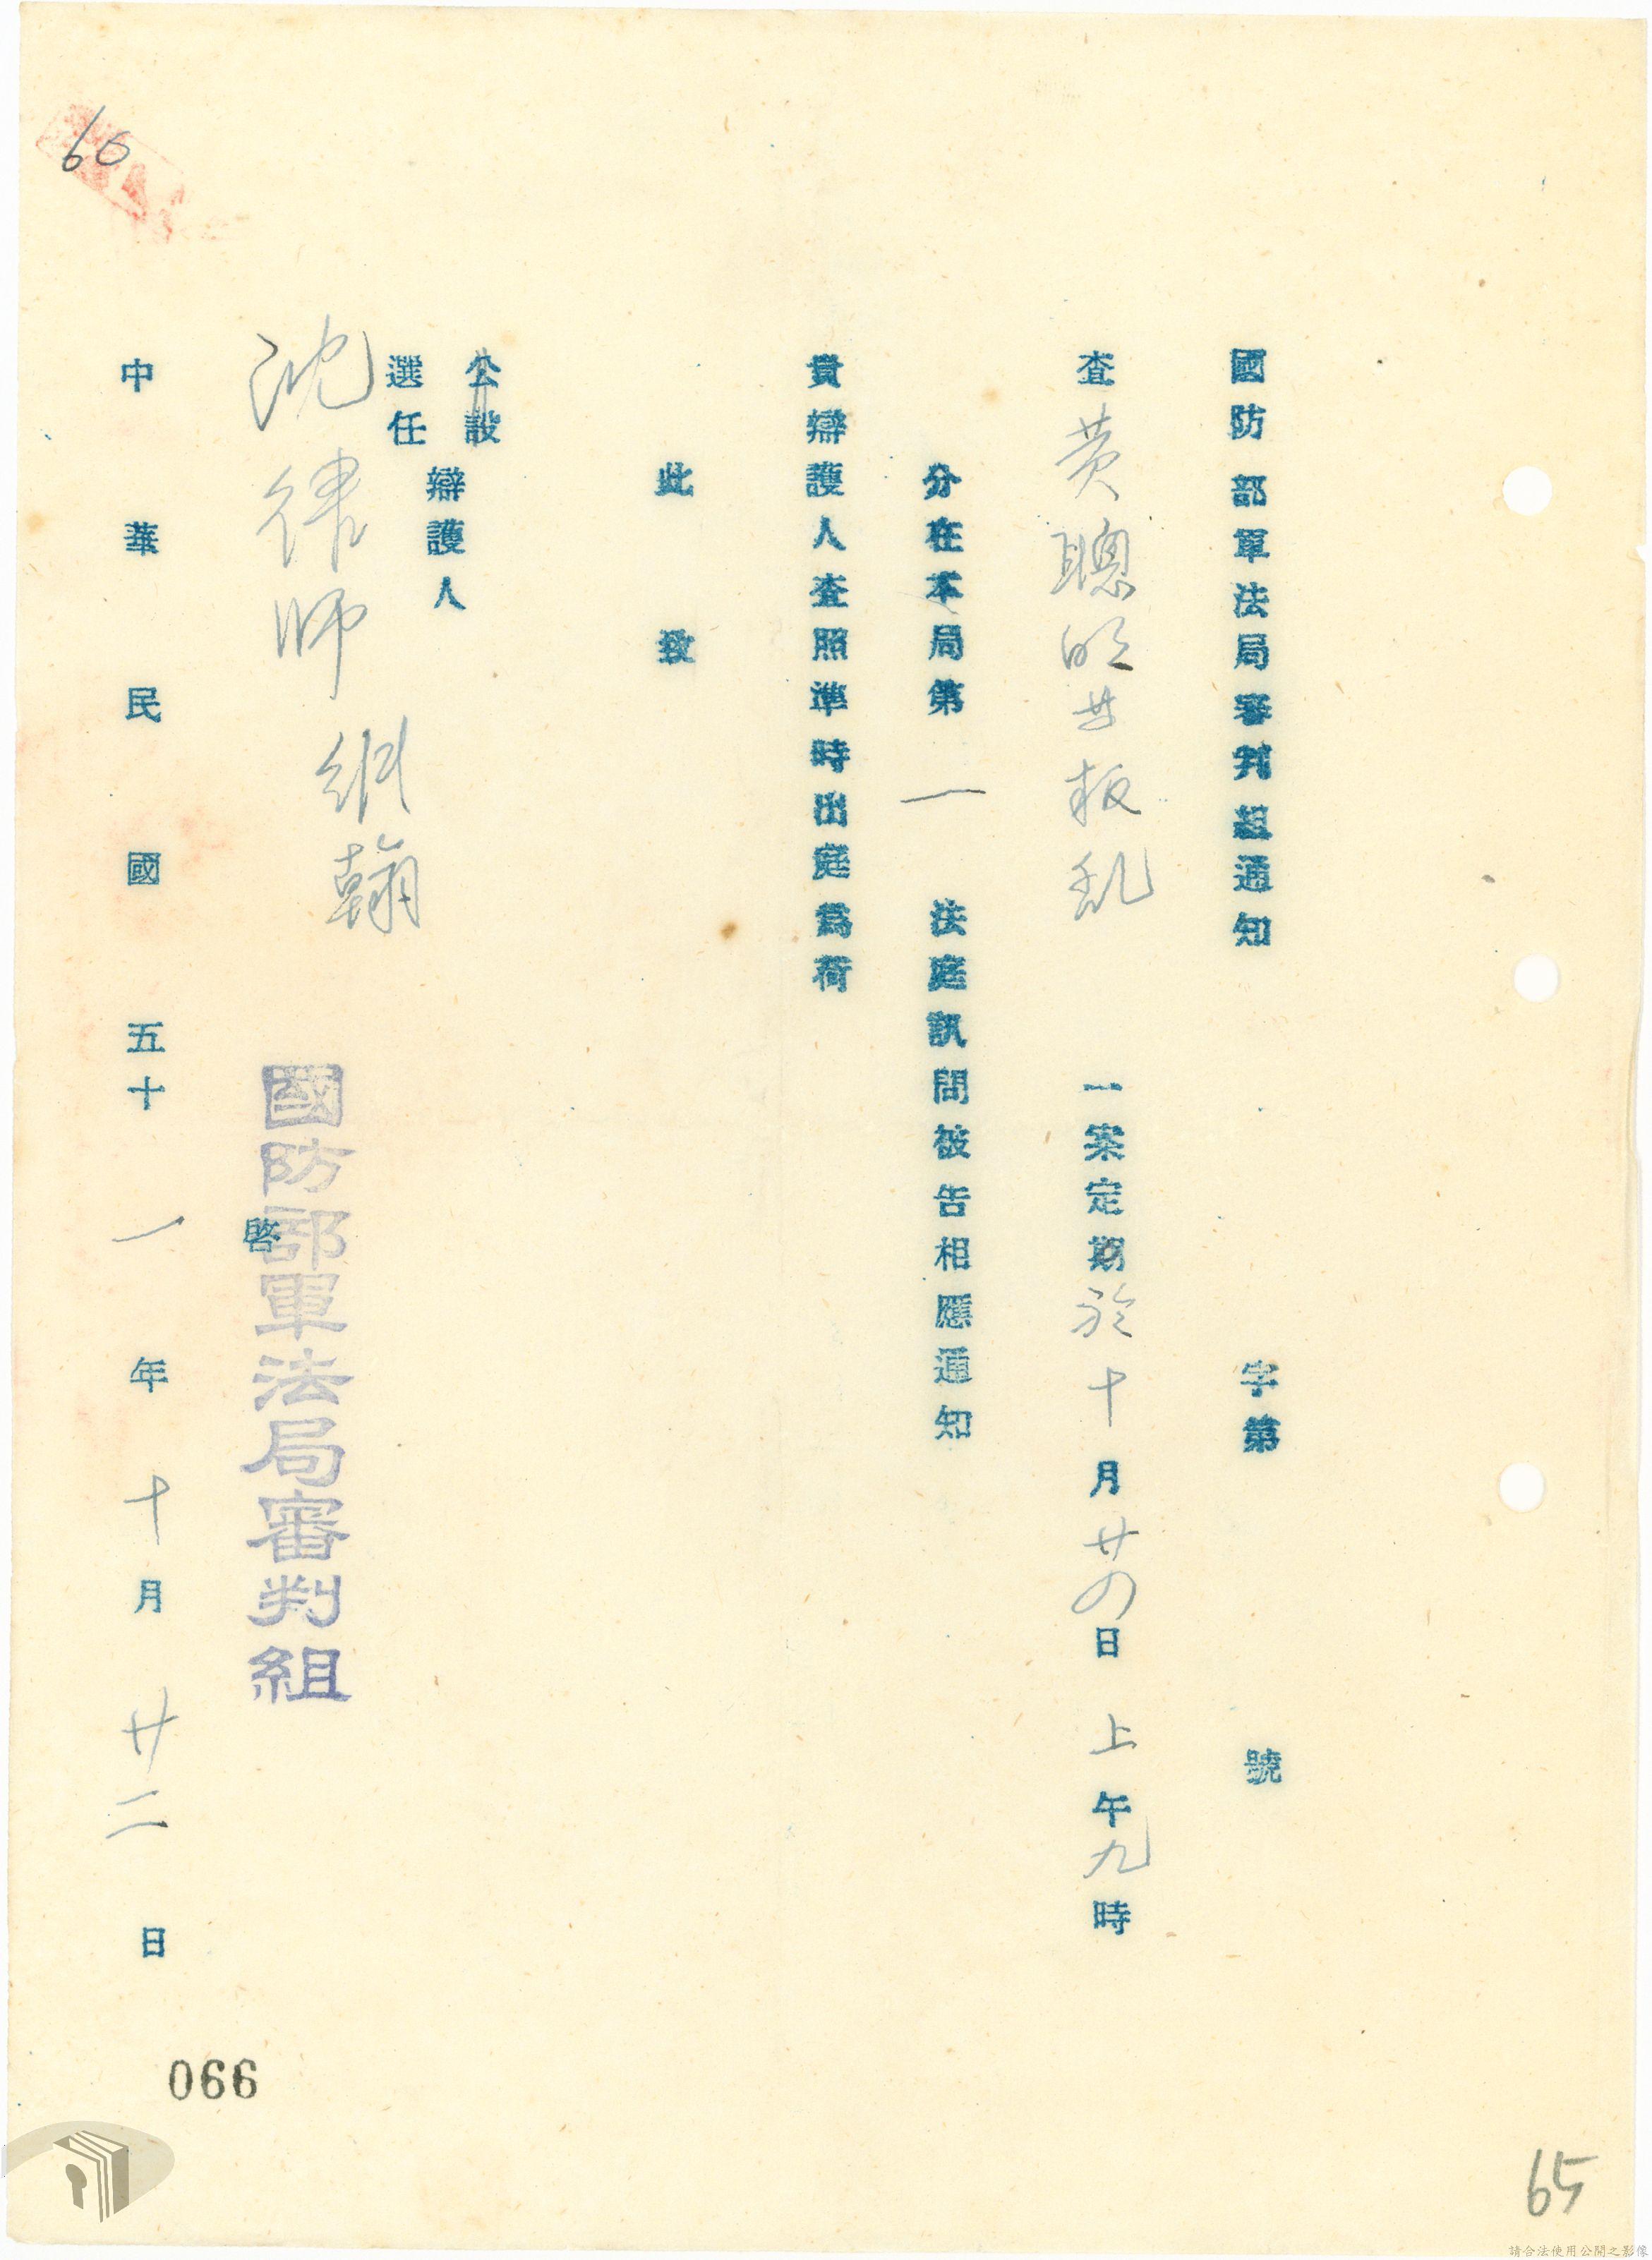 國防部軍法局審判組通知 字第 號
查黃聰明廿叛乱一案定期於十月廿四日上午九時
分在本局第一法庭訊問被告相應通知
貴辯護人查照準時出庭為荷
此致
公設
選任
辯護人
沈律師 綱翰
國防部軍法局審判組
啓
中華民國五十一年十月廿二日
60
066
65
請合法使用公開之影像